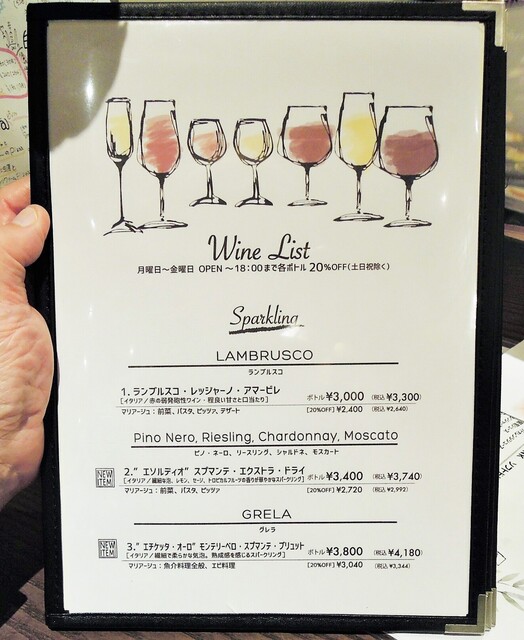 Wine List
月曜日～金曜日 OPEN ～18:00まで各ボトル 20%OFF(土日祝除く)
Sparkling
LAMBRUSCO
ランブルスコ
1. ランブルスコ・レッジャーノ・アマービレ ボトル ¥3,000 (税込 ¥3,300)
[イタリア/赤の弱発砲性ワイン・程良い甘さと口当たり] [20%OFF] ¥2,400 (税込 ¥2,640)
マリアージュ：前菜、パスタ、ピッツァ、デザート
Pino Nero, Riesling, Chardonnay, Moscato
ピノ・ネーロ、リースリング、シャルドネ、モスカート
NEW ITEM 2.“ エソルディオ” スプマンテ・エクストラ・ドライ ボトル ¥3,400 (税込 ¥3,740)
[イタリア/繊細な泡、レモン、セージ、トロピカルフルーツの香りが華やかなスパークリング] [20%OFF] ¥2,720 (税込 ¥2,992)
マリアージュ：前菜、パスタ、ピッツァ
GRELA
グレラ
NEW ITEM 3.“ エチケッタ・オーロ” モンテリーベロ・スプマンテ・ブリュット ボトル ¥3,800 (税込 ¥4,180)
[イタリア/繊細で柔らかな気泡。熟成感を感じるスパークリング] [20%OFF] ¥3,040 (税込 ¥3,344)
マリアージュ：魚介料理全般、エビ料理